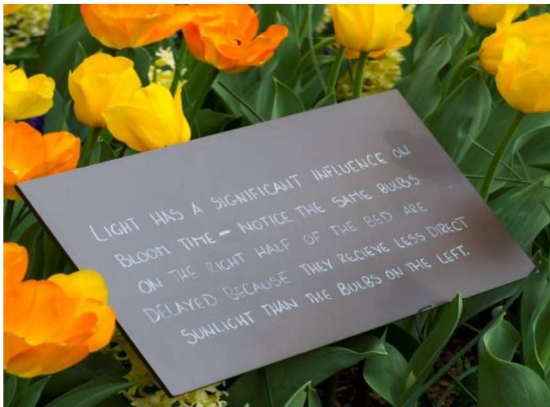 LIGHT HAS A SIGNIFICANT INFLUENCE ON
BLOOM TIME – NOTICE THE SAME BULBS
ON THE RIGHT HALF OF THE BED ARE
DELAYED BECAUSE THEY RECIEVE LESS DIRECT
SUNLIGHT THAN THE BULBS ON THE LEFT.